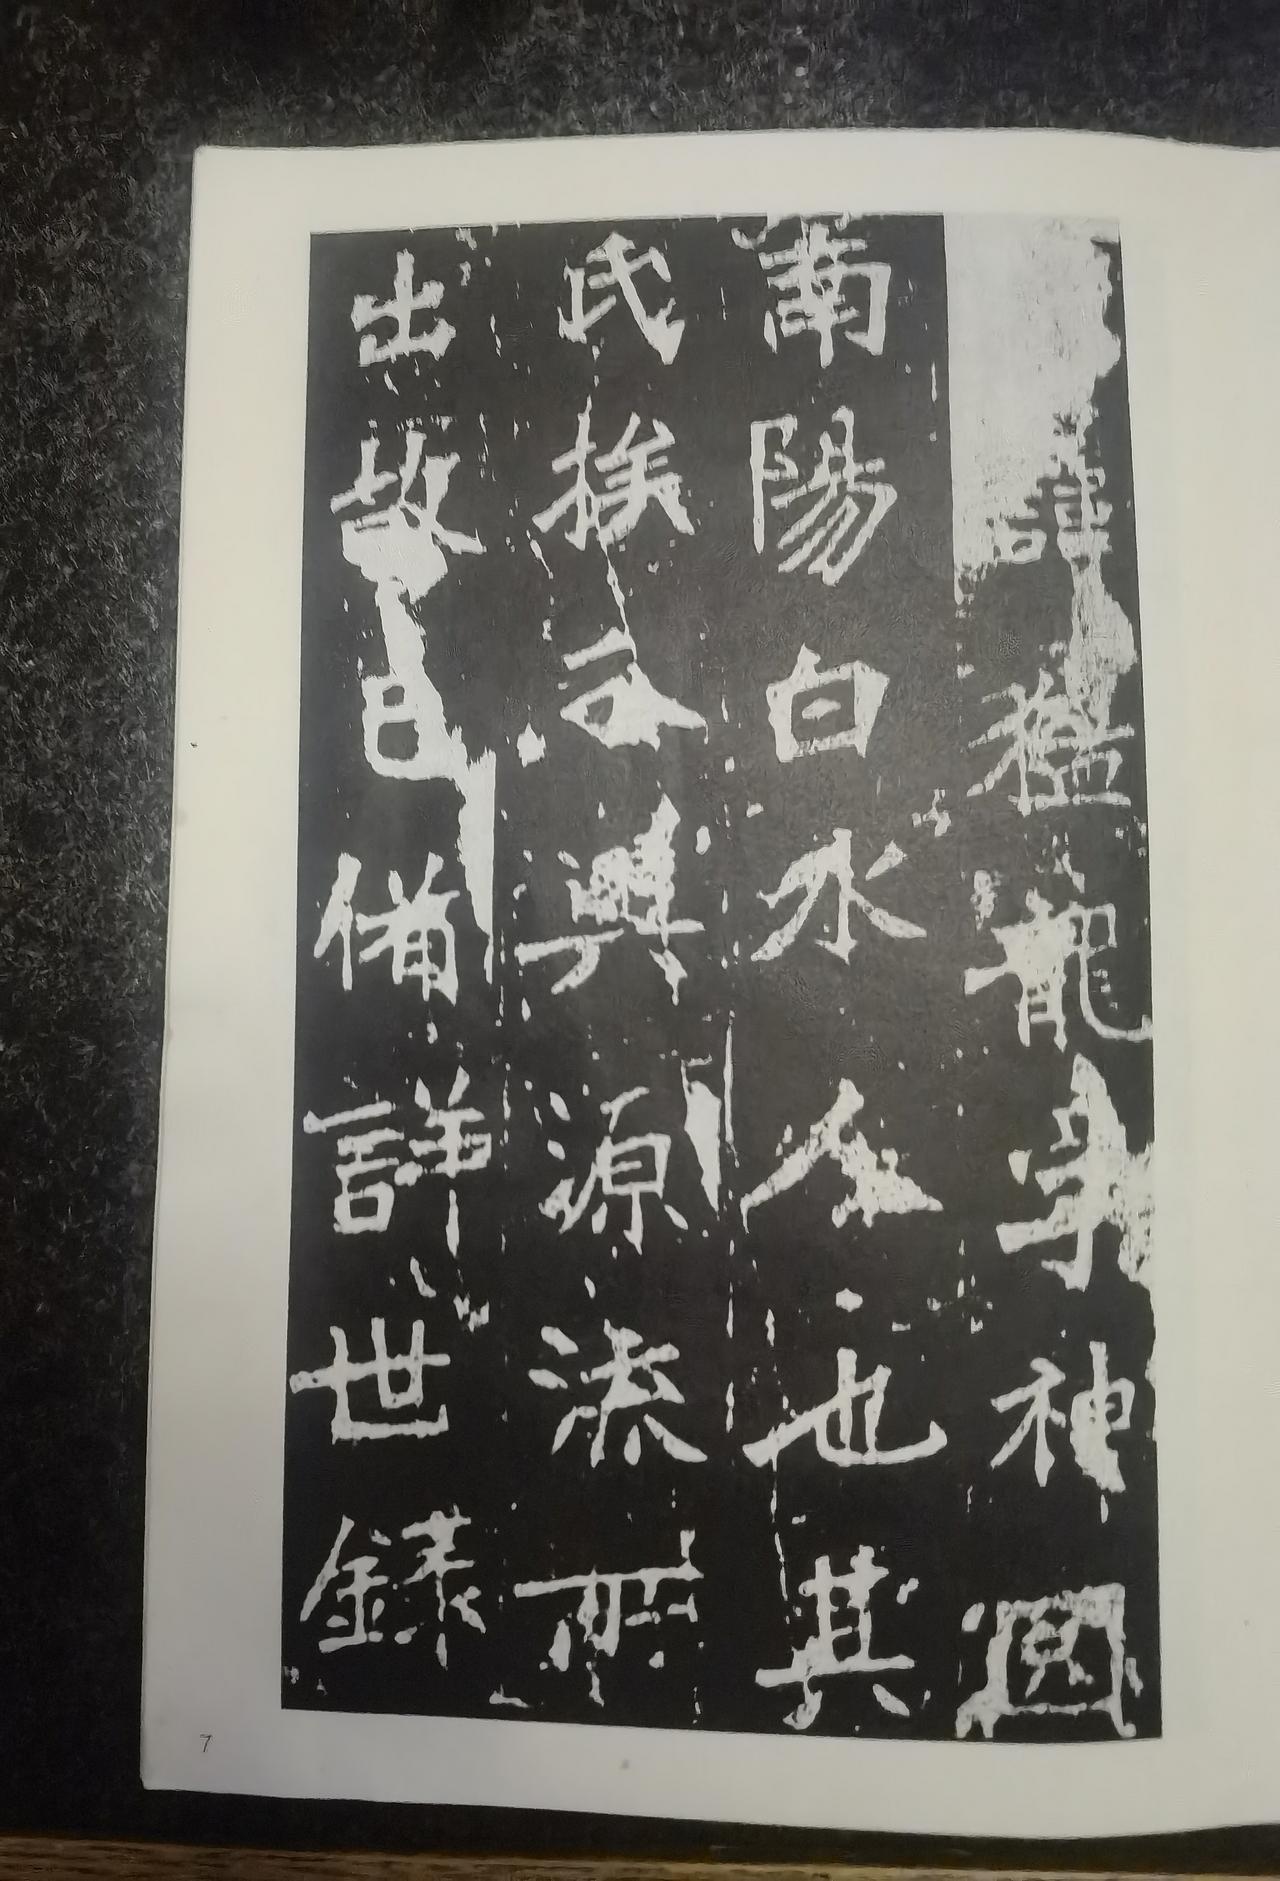 諱猛龍字神囧
南陽白水人也其
氏族分興源流所
出故已備詳世錄
7